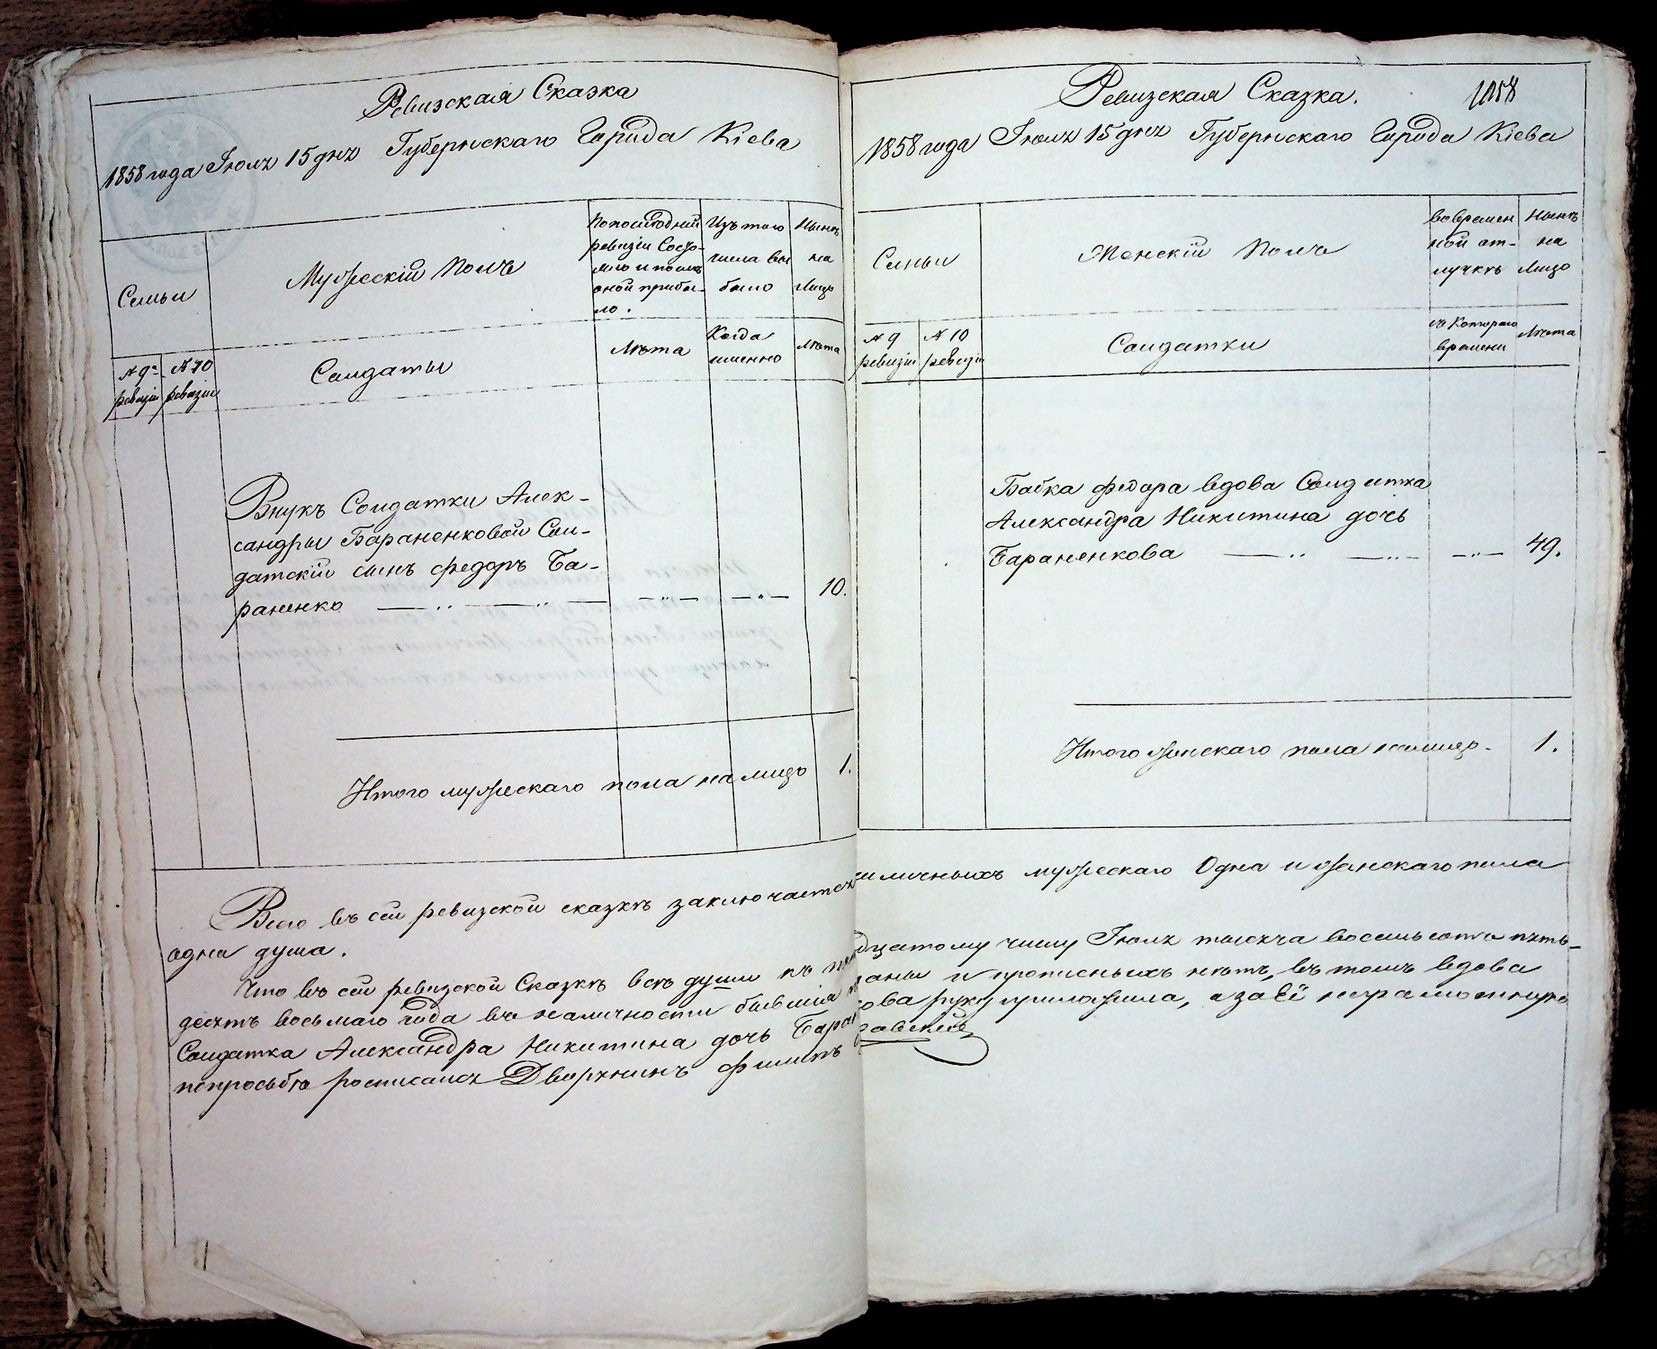 Ревизская Сказка
1858 года Іюля 15 дня Губернскаго Города Кіева
Семьи
Мужескій Полъ
По последней
ревизіи состо-
яло и после
оной прибы-
ло.
Изъ того
числа вы
было
Ныне
на
Лицо
№ 9
ревизіи
№ 10
ревизіи
Солдаты
Лѣта
Когда
именно
Лѣта
Внукъ Солдатки Алек-
сандры Бараненковой Сол-
датскій сынъ Федоръ Ба-
раненко 10.
Итого мужескаго пола на лицо 1.
Всего въ сей ревизской сказкѣ заключается
одна душа.
Что въ сей ревизской Сказкѣ всѣ души къ
десятъ восьмаго года въ наличности бывшія
Солдатка Александра Никитина дочь
по просьбѣ росписался Дворянинъ Филипъ
Ревизская Сказка.
1858 года Іюля 15 дня Губернскаго Города Кіева
Семьи
Женскій Полъ
Во времен
ной от-
лучкѣ
Нынѣ
на
Лицо
№ 9
ревизіи
№ 10
ревизіи
Солдатки
съ Котораго
времени
Лѣта
Бабка Федора вдова Солдатка
Александра Никитина дочь
Бараненкова 49.
Итого женскаго пола налицо. 1.
наличныхъ мужескаго Одна и женскаго пола
числу Іюля тысяча восемьсотъ пять-
и прописныхъ нѣтъ, въ томъ вдова
руку приложила, а за её неграмотную